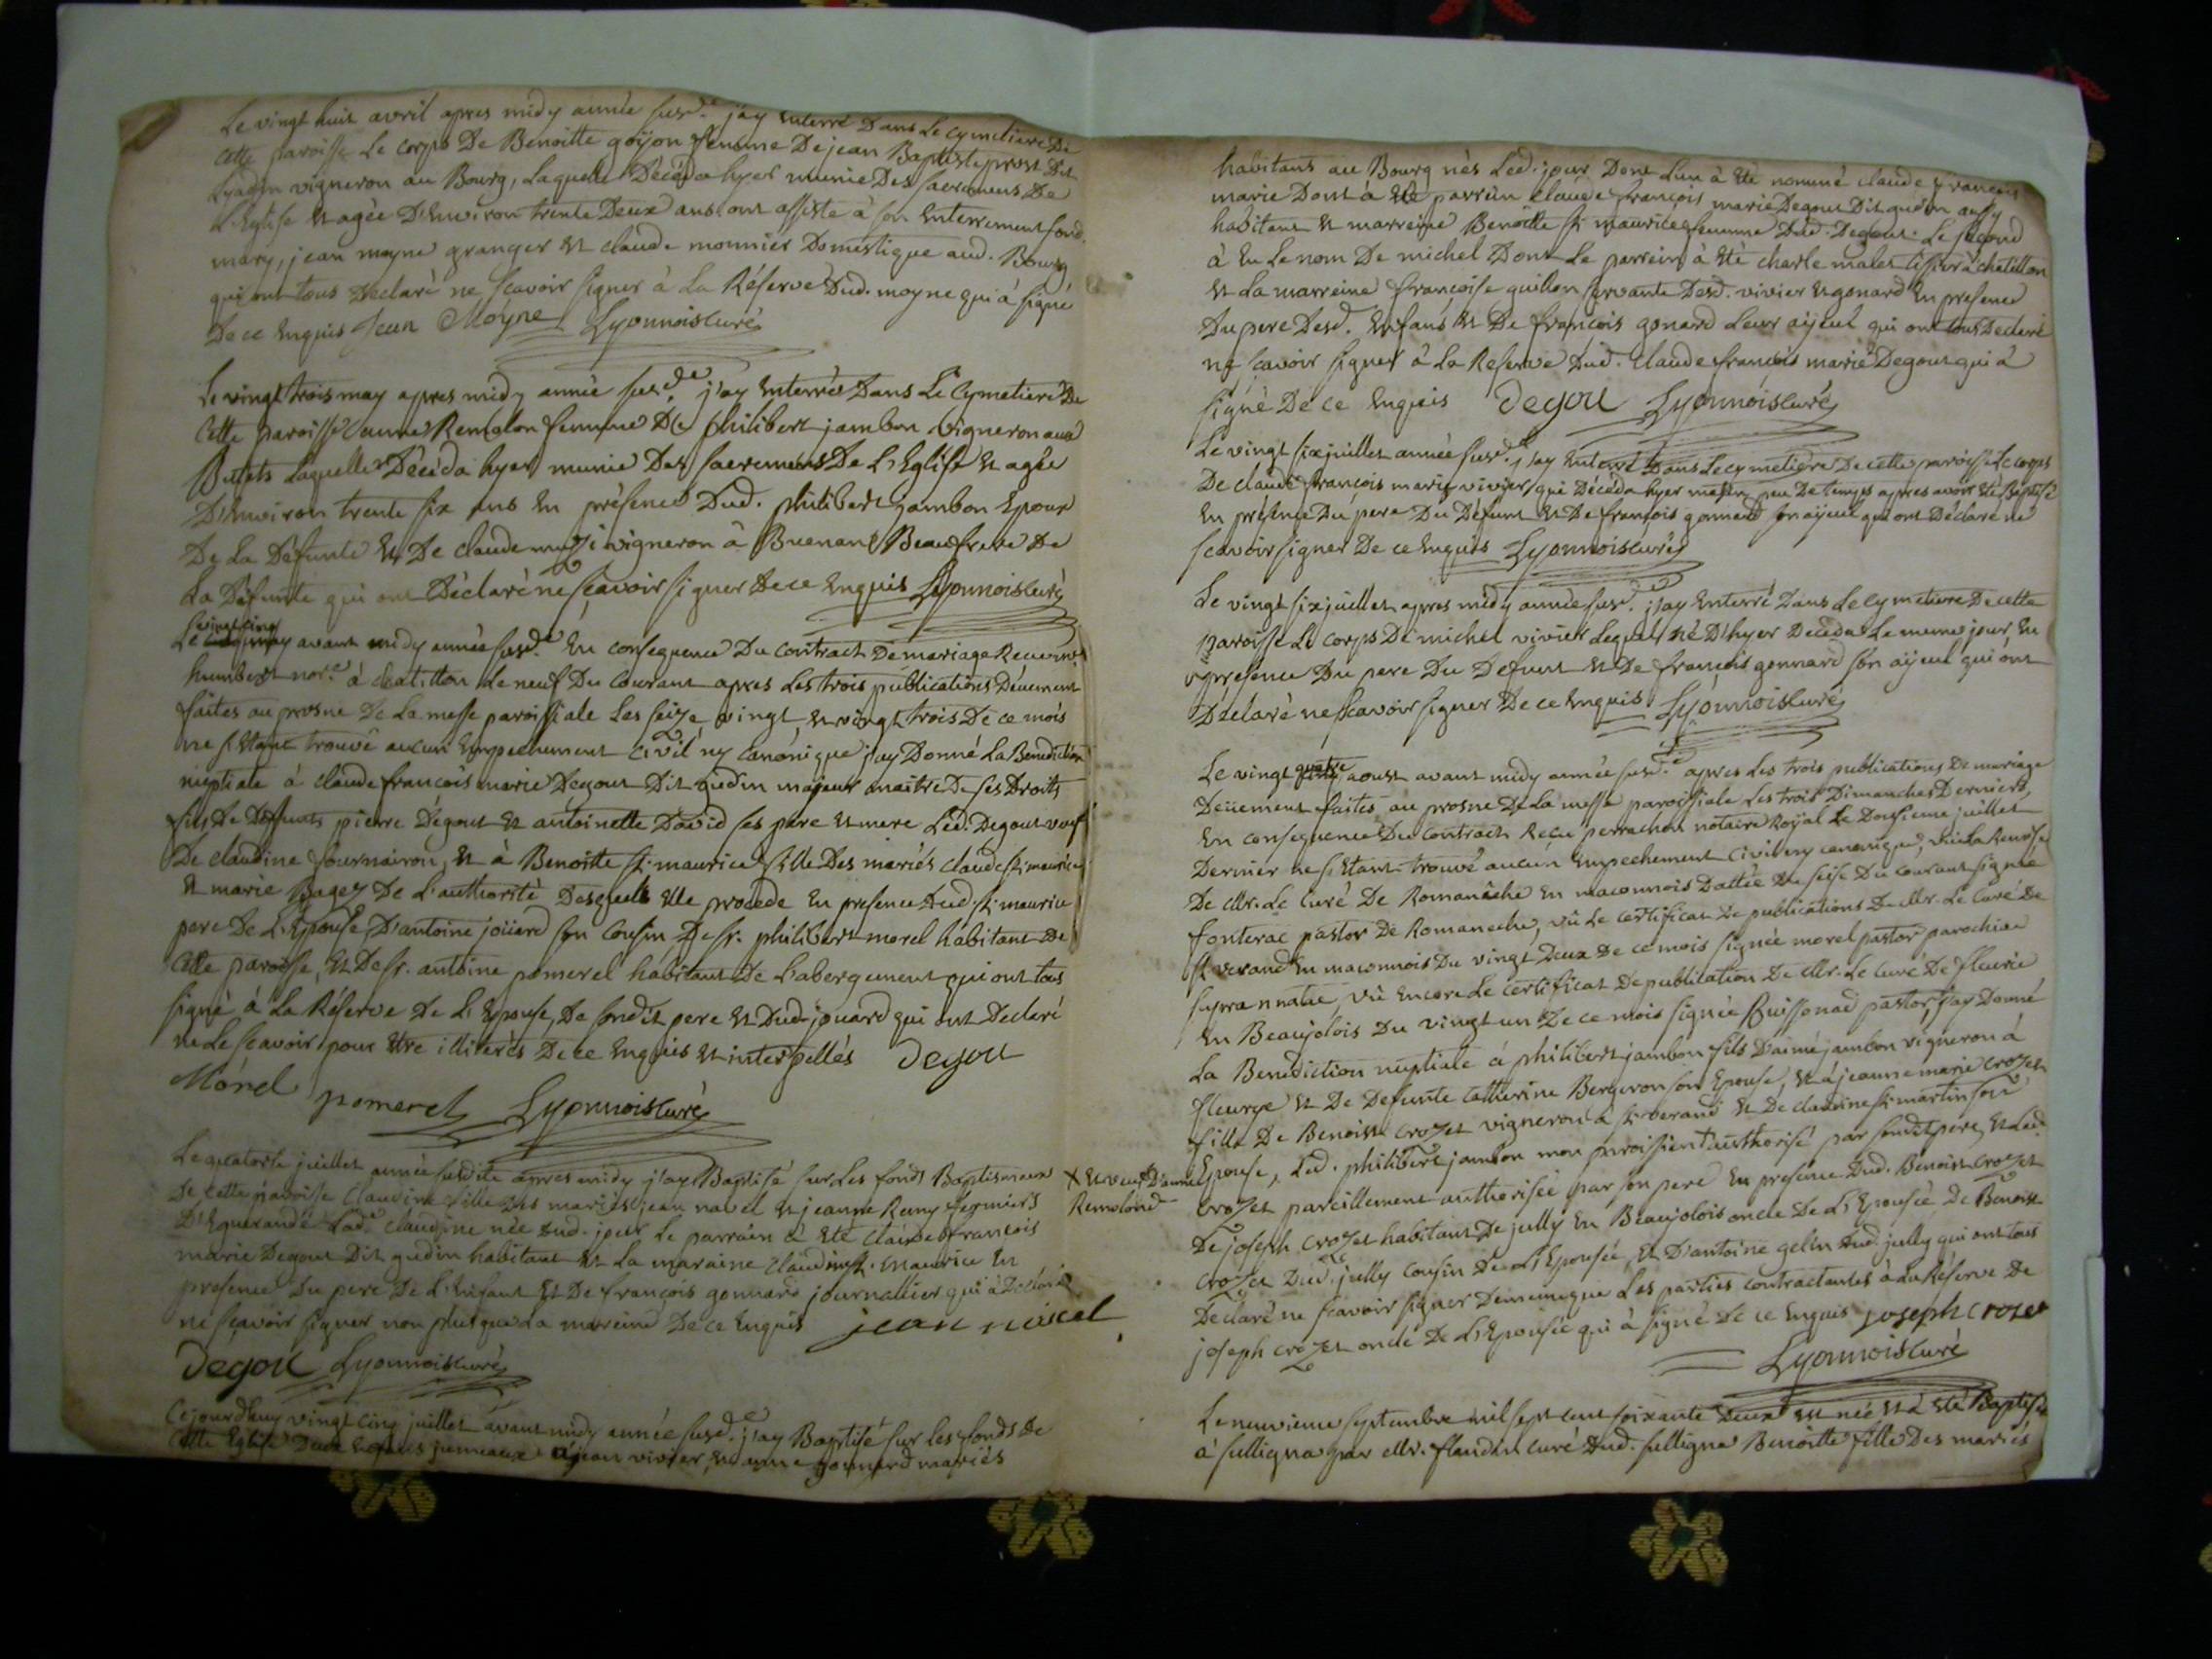 Le vingt huit avril apres midy année susd.e j'ay enterré dans le cymetiere de
cette paroisse le corps de Benoitte goÿon femme de jean Baptiste prost dit
vigneron au Bourg, laquelle décéda hyer munie des sacremens de
l'Eglise et agée d'environ trente deux ans, ont assisté à son enterrement sond.
mary, jean moyne granger et claude monnier domestique aud. Bourg
qui ont tous déclaré ne scavoir signer à la Réserve dud. moyne qui à signé
de ce enquis Jean Moyne Lyonnois curé
Le vingt trois may apres midy année susd.e j'ay enterrée dans le cymetiere de
cette paroisse anne Remolon femme de philibert jambon vigneron aux
Butets laquelle décéda hyer munie des sacremens de l'Eglise et agée
d'environ trente six ans en présence dud. philibert jambon Epoux
de la défunte et de claude vigneron à Buenant Beaufrere de
la défunte qui ont déclaré ne scavoir signer de ce enquis Lyonnois curé
Le vingt cinq may avant midy année susd.e en consequence du contract de mariage Receu m.e
humbert not.e à chatillon le neuf du courant apres les trois publications duement
faites au prosne de la messe paroissiale les seize, vingt, et vingt trois de ce mois
ne s'etant trouvé aucun empechement civil ny canonique j'ay donné la Benediction
nuptiale à claude francois marie degout dit guedin majeur maitre de ses droits
fils de deffunts pierre Dégout et antoinette David ses pere et mere led. Degout veuf
de claudine fournairon, et à Benoitte st. maurice fille des mariés claude st. maurice
et marie Bagez de l'authorité desquels elle procede en presence dud. st. maurice
pere de l'Epouse, d'antoine joüard son cousin, de sr. philibert morel habitant de
cette paroisse, et de sr. antoine pomerel habitant de l'abergement qui ont tous
signé à la Réserve de l'Epouse, de sondit pere et dud. jouard qui ont declaré
ne le scavoir pour etre illiterés de ce enquis et interpellés degou
Morel pomerel Lyonnois curé
Le quatorze juillet année susdite apres midy j'ay Baptisé sur les fonds Baptismaux
de cette paroisse claudine fille des mariés jean navel et jeanne Remy
d'Eguerande lad.e claudine née dud. jour le parrain à eté claude francois
marie degout dit guedin habitant et la maraine claudine st. maurice en
presence du pere de l'enfant et de françois gonnard journallier qui à déclaré
ne scavoir signer non plus que la marreine de ce enquis jean navel
degou Lyonnois curé
Cejourdhuy vingt cinq juillet avant midy année susd.e j'ay Baptisé sur les fonds de
cette Eglise deux enfans jumeaux à jean vivier, et anne gonnard mariés
habitans au Bourg nés led. jour dont l'un à eté nommé claude francois
marie dont à eté parrein claude françois marie Degout dit guedin aussy
habitant et marreine Benoitte st maurice femme dud. Degout. Le second
à eu le nom de michel dont le parrein à eté charle malet à chatillon
et la marreine francoise guillon servante desd. vivier et gonard en presence
du pere desd. enfans et de françois gonard leur aÿeul qui ont tous declaré
ne scavoir signer à la Reserve dud. claude françois marie Degout qui à
signé de ce enquis degou Lyonnois curé
Le vingt six juillet année susd.e j'ay enterré dans le cymetiere de cette paroisse le corps
de claude françois marie vivier qui décéda hyer matin peu de temps apres avoir eté Baptisé
en présence du pere du défunt et de françois gonnard son aÿeul qui ont déclaré ne
scavoir signer de ce enquis Lyonnois curé
Le vingt six juillet apres midy année susd.e j'ay enterré dans le cymetiere de cette
paroisse le corps de michel vivier lequel né d'hyer décéda le meme jour, en
presence du pere du defunt et de françois gonnard son aÿeul qui ont
déclaré ne scavoir signer de ce enquis Lyonnois curé
Le vingt quatre aoust avant midy année susd.e apres les trois publications de mariage
deüement faites au prosne de la messe paroissiale les trois dimanches derniers,
en consequence du contract Reçu perrachon notaire Royal le dousieme juillet
dernier ne s'etant trouvé aucun empechement civil ny canonique, vu la Remise
de Mr. le curé de Romaneche en maconnois dattée du seise du courant signée
fonterac pastor de Romaneche, vû le certificat de publications de Mr. le curé de
st verand en maconnois du vingt deux de ce mois signée morel pastor parochiae
supra nnatae, vû encore le certificat de publication de Mr. le curé de fleurie
en Beaujolois du vingt un de ce mois signée Buissonad pastor, j'ay donné
la Benediction nuptiale à philibert jambon fils d'aimé jambon vigneron à
fleurye et de defunte catherine Bergeron son Epouse, et à jeanne marie crozet
fille de Benoist crozet vigneron à st verand et de claudine st. martin son
X et veuf d'anne
Remolond
Epouse, led. philibert jambon mon paroissien + authorisé par sondit pere, et lad.
crozet pareillement authorisée par son pere en presence dud. Benoist crozet
de joseph crozet habitant de jully en Beaujolois oncle de l'Epousée de Benoist
crozet dud. jully cousin de l'Epousée, et d'antoine gelin dud. jully qui ont tous
déclaré ne scavoir signer de meme que les parties contractantes à la Réserve de
joseph crozet oncle de l'Epousée qui à signé de ce enquis joseph crozet
Lyonnois curé
Le neuvieme septembre mil sept cent soixante deux est née et à eté Baptisée
à sulligna par Mr. flandin curé dud. sulligna Benoitte fille des mariés